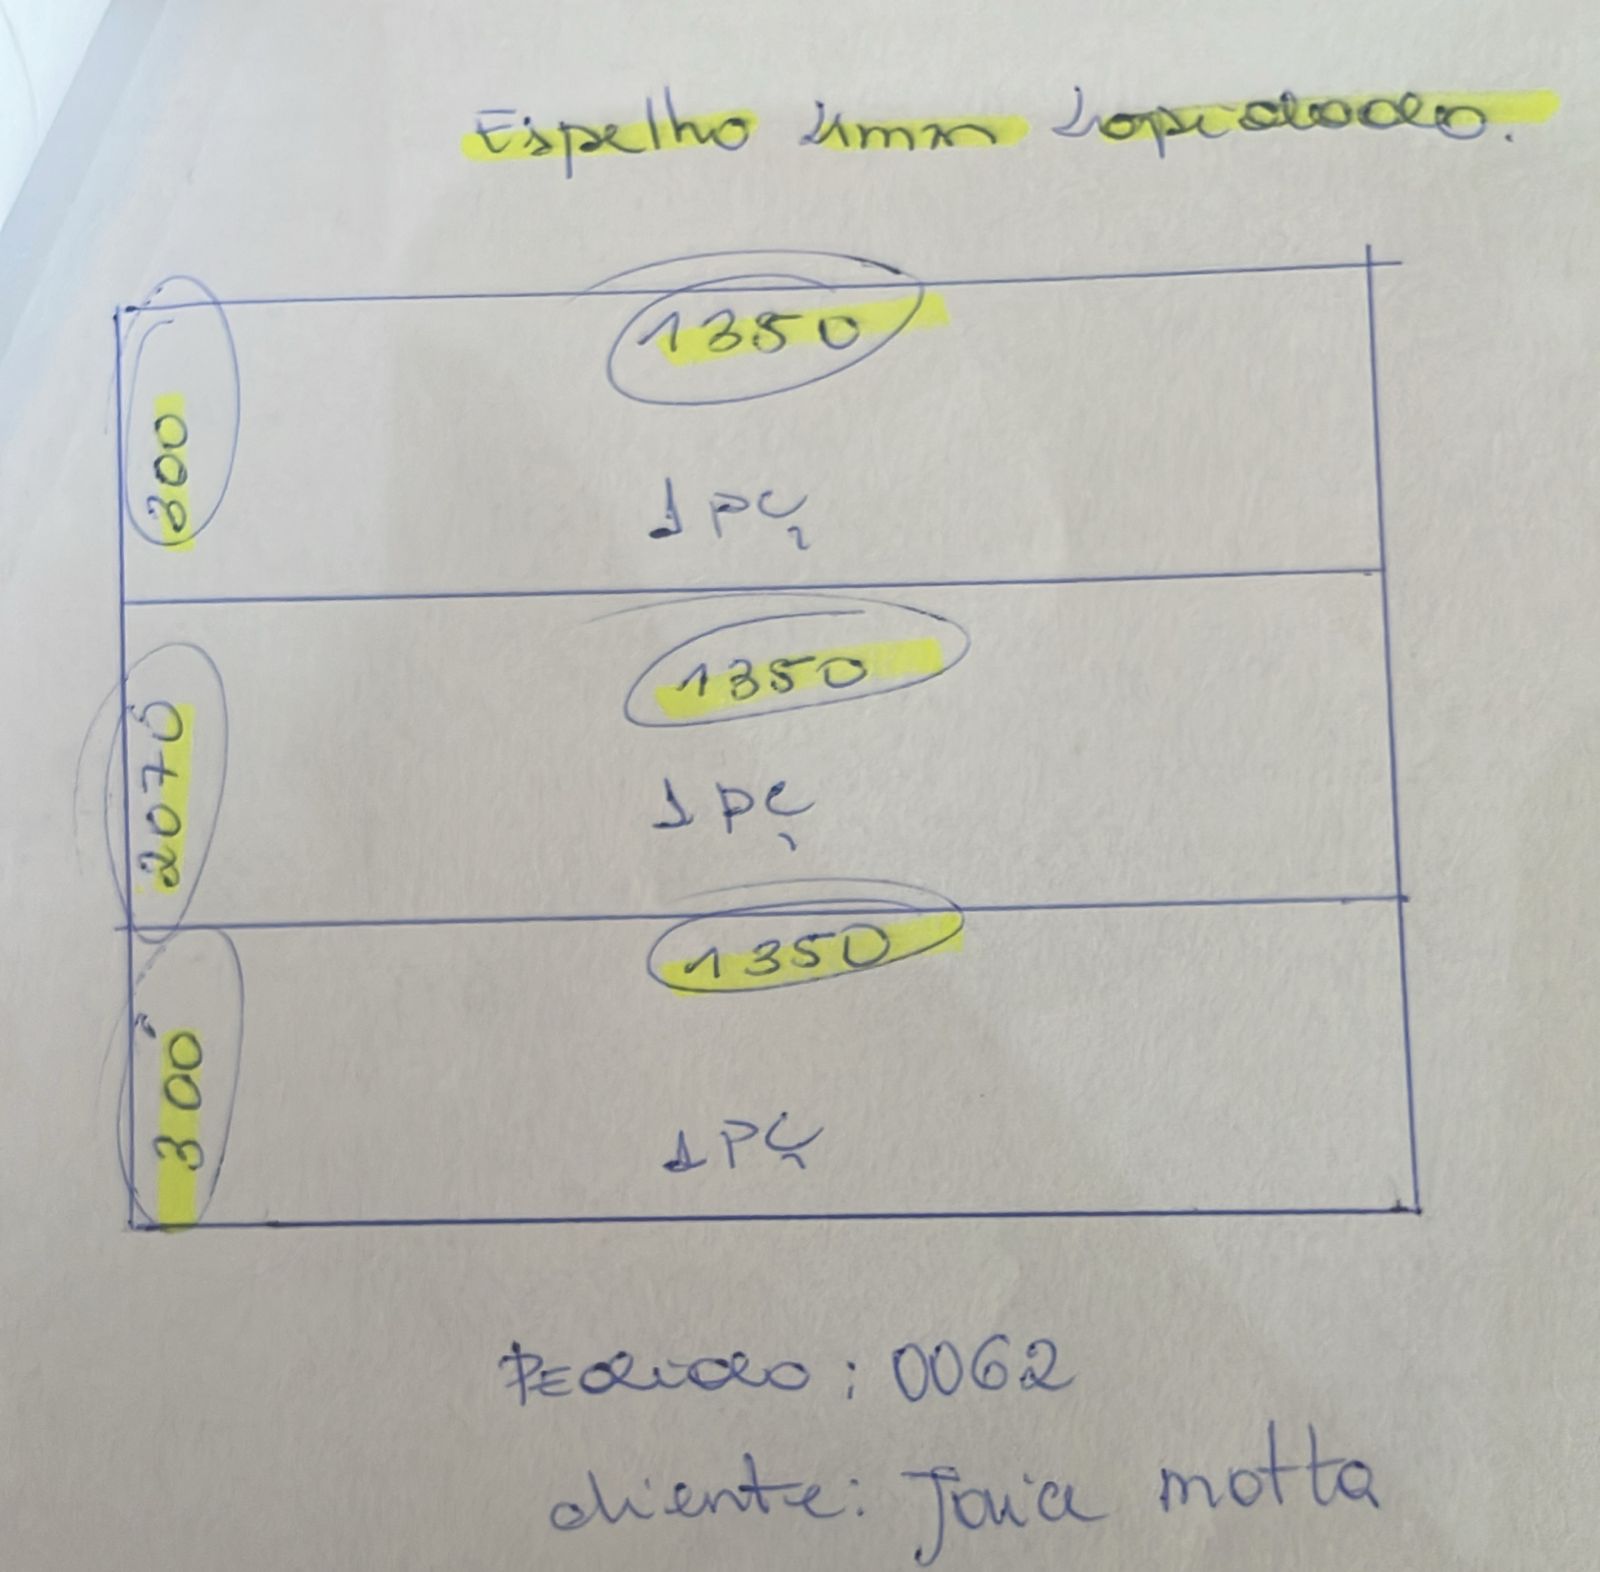 Espelho 4mm Lapidado.
1350
300
1 PÇ
1350
2070
1 PÇ
1350
300
1 PÇ
PEdido: 0062
cliente: motta